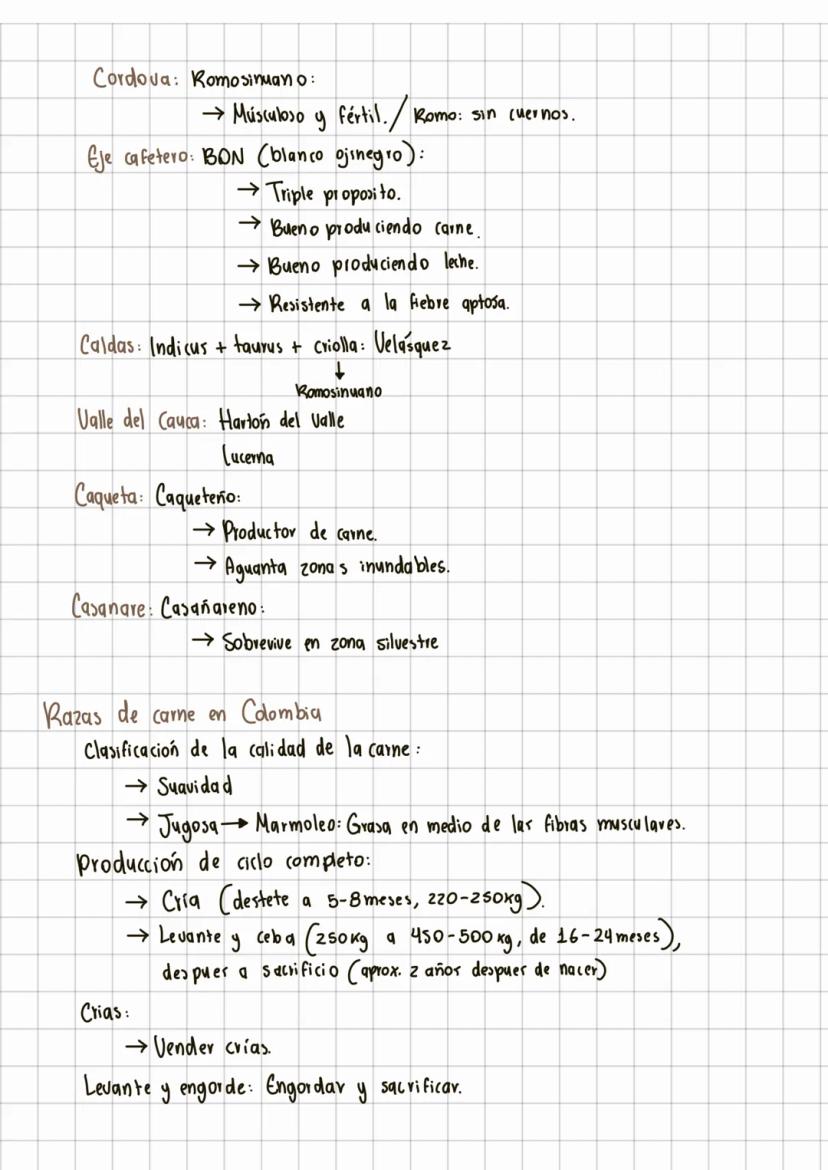 Cordova: Romosinuano:
→ Músculoso y fértil. / Romo: sin cuernos.
Eje cafetero: BON (blanco ojinegro):
→ Triple proposito.
→ Bueno produciendo carne.
→ Bueno produciendo leche.
→ Resistente a la fiebre aptosa.
Caldas: Indicus + taurus + criolla: Velásquez
↓
Romosinuano
Valle del Cauca: Hartón del Valle
Lucerna
Caqueta: Caqueteño:
→ Productor de carne.
→ Aguanta zonas inundables.
Casanare: Casañareno:
→ Sobrevive en zona silvestre
Razas de carne en Colombia
Clasificación de la calidad de la carne:
→ Suavidad
→ Jugosa → Marmoleo: Grasa en medio de las fibras musculares.
Producción de ciclo completo:
→ Cría (destete a 5-8 meses, 220-250kg).
→ Levante y ceba (250kg a 450-500 kg, de 16-24 meses),
despues a sacrificio (aprox. 2 años despues de nacer)
Crias:
→ Vender crías.
Levante y engorde: Engordar y sacrificar.